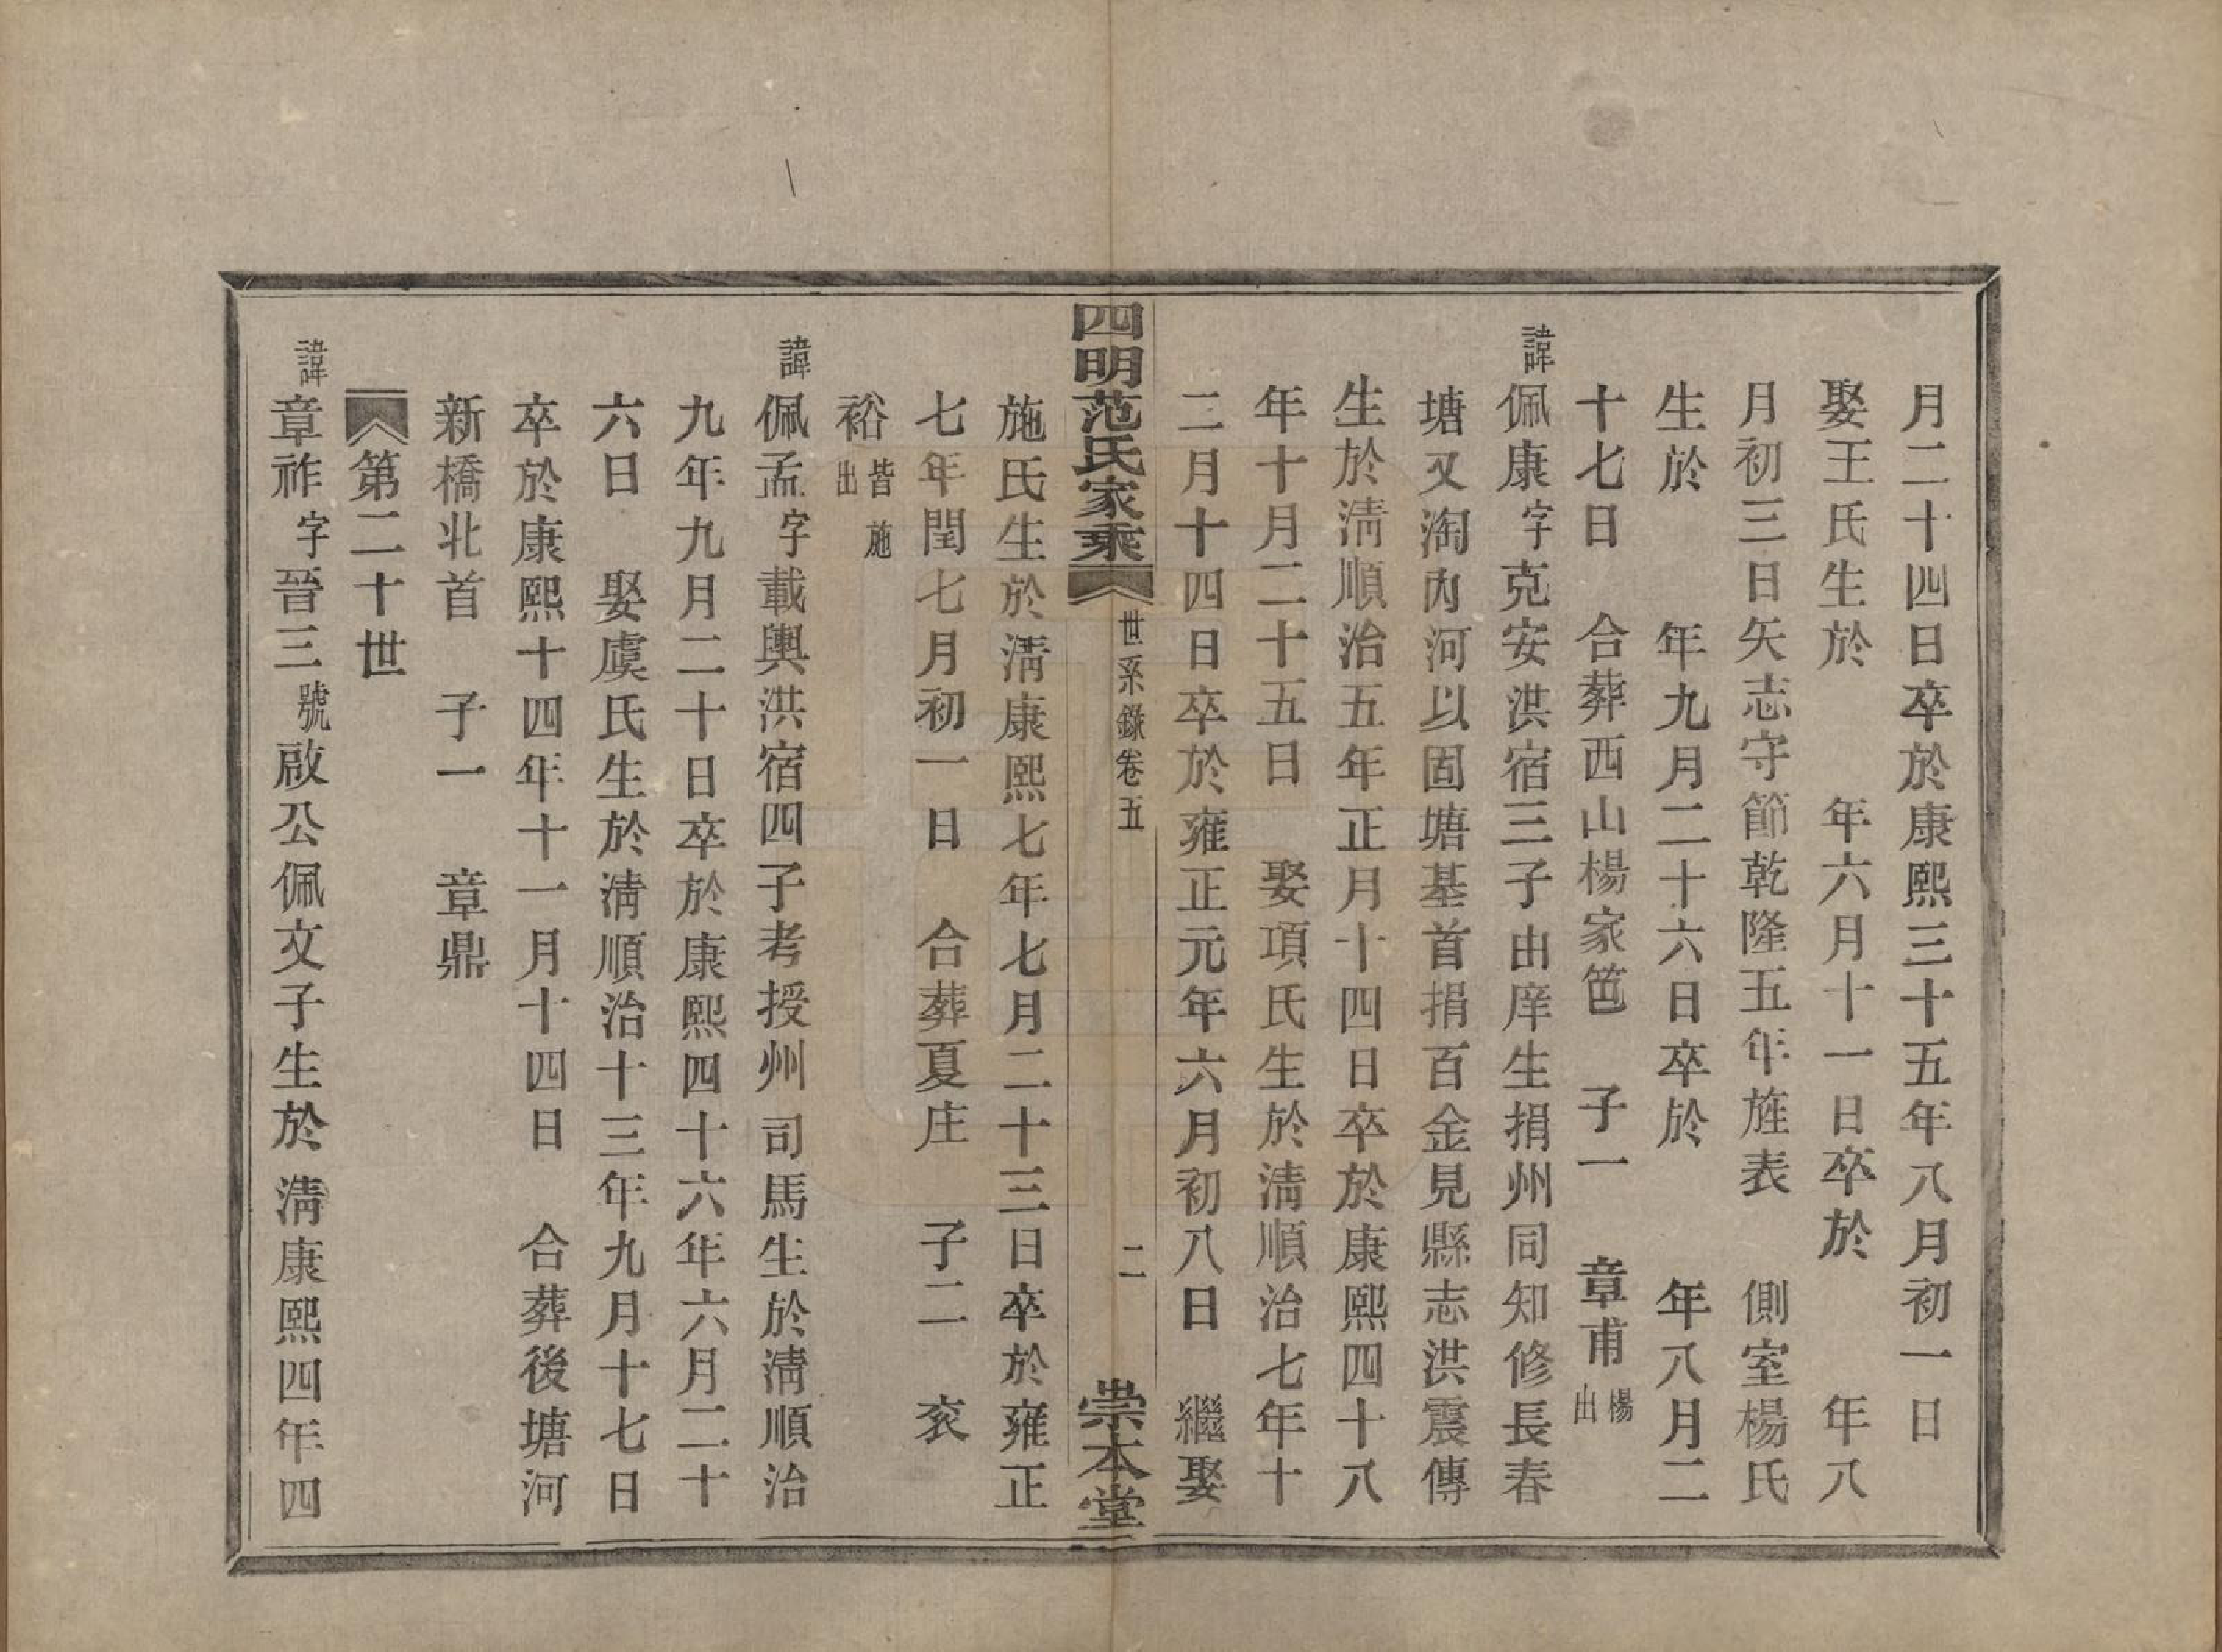 月二十四日卒於康熙三十五年八月初一日
娶王氏生於　　年六月十一日卒於　　年八
月初三日矢志守節乾隆五年旌表　側室楊氏
生於　　年九月二十六日卒於　　年八月二
十七日　合葬西山楊家笆　子一　章甫楊出
諱佩康字克安洪宿三子由庠生捐州同知修長春
塘又淘內河以固塘基首捐百金見縣志洪震傳
生於清順治五年正月十四日卒於康熙四十八
年十月二十五日　娶項氏生於清順治七年十
二月十四日卒於雍正元年六月初八日　繼娶
四明范氏家乘　世系錄卷五　二　崇本堂
施氏生於清康熙七年七月二十三日卒於雍正
七年閏七月初一日　合葬夏庄　子二　衮
裕皆施出
諱佩孟字載輿洪宿四子考授州司馬生於清順治
九年九月二十日卒於康熙四十六年六月二十
六日　娶虞氏生於清順治十三年九月十七日
卒於康熙十四年十一月十四日　合葬後塘河
新橋北首　子一　章鼎
第二十世
諱章祚字晉三號啟公佩文子生於清康熙四年四